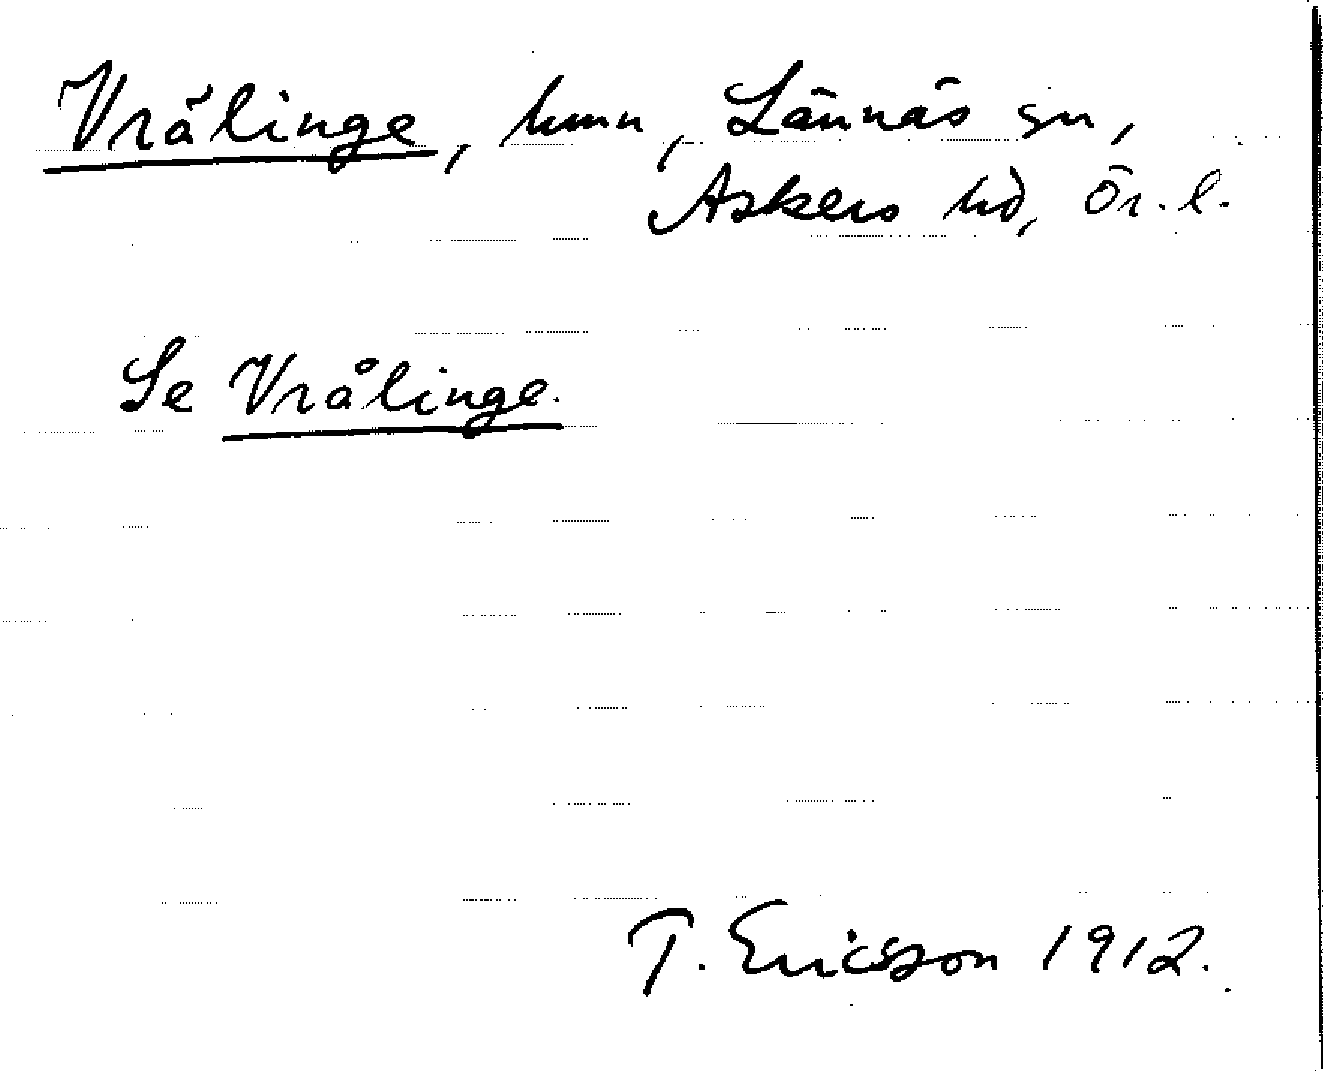 Vrälinge, hmn, Lännäs sn,
Askers hd, Ör. l.
Se Vrålinge.
T. Ericsson 1912.